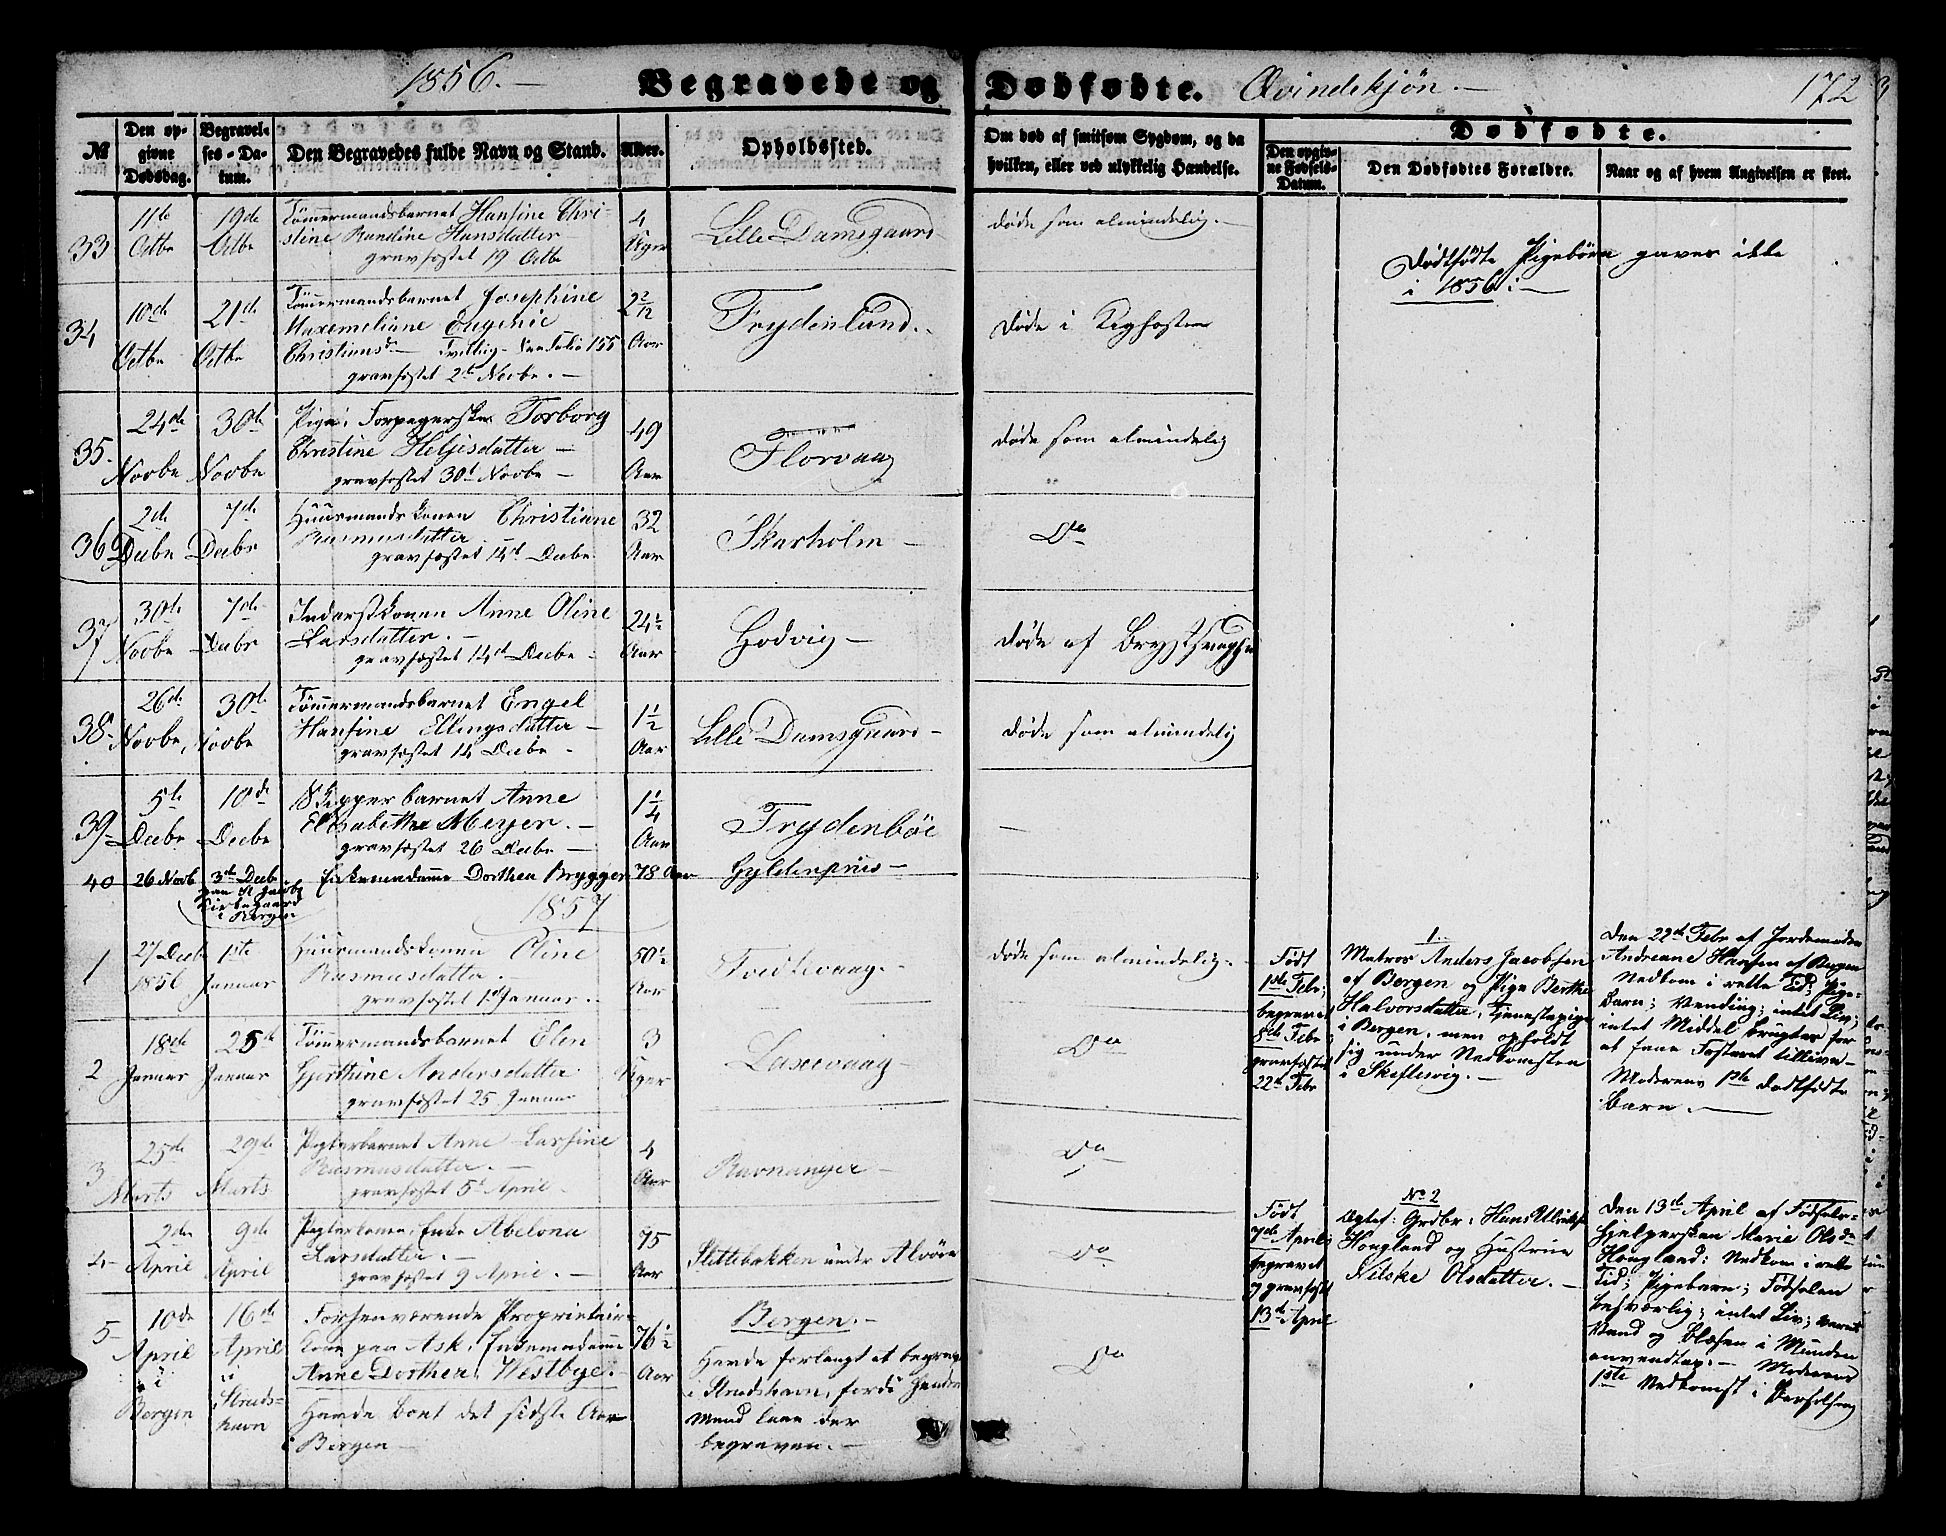 1856.- Begravede og Dødfødte. Qvindekjøn.- 172
№
Den op-
givne
Dødsdag.
Begravel-
ses-Da-
tum.
Den Begravedes fulde Navn og Stand.
Alder.
Opholdssted.
Om død af smitsom Sygdom, og da
hvilken, eller ved ulykkelig Hændelse.
Dødfødte.
Den opgiv-
ne Fødsels-
Datum.
Den Dødfødtes Forældre.
Naar og af hvem Angivelsen er skeet.
33
11te
Octbr
19de
Octbr
Tømmermandsbarnet Hansine Chri-
stine Randine Hansdatter
gravfæstet 19 Octbr
4
Uger
Lille Damsgaard
døde som almindelig.-
Dødfødte Pigebørn gaves ikke
i 1856.-
34
10de
Octbr
21de
Octbr
Tømmermandsbarnet Josephine
Maxemeliane Eugenie
Christiansdr Tvilling
gravfæstet 2de Novbr.-
2 2/12
Aar
Frydenlund.-
døde i Kighosten
35.
24de
Novbr
30te
Novbr
Pige Torborg
Christine Heljesdatter-
gravfæstet 30te Novbr-
49
Aar
Florvaag
døde som almindelig
36
2de
Decbr
7de
Decbr
Huusmandskonen Christiane
Rasmusdatter
gravfæstet 14de Decbr.
32
Aar
Skarholm-
Do
37
30te
Novbr
7de
Decbr
Inderstkonen Anne Oline
Larsdatter.-
gravfæstet 14d Decbr-
24½
Aar
Godvig-
døde af Brystsvaghed
38
26de
Novbr,
30te
Novbr
Tømmermandsbarnet Engel
Hansine Ellingsdatter-
gravfæstet 14 Decbr-
1½
Aar
Lille Damsgaard-
døde som almindelig
39-
5te
Decbr
10de
Decbr
Skipperbarnet Anne
Elisabethe Meyer.-
gravfæstet 26 Decbr-
1¼
Aar
Frydenbøe
-
40
26 Novb
3de Decbr
paa St Jacobs
Kirkegaard
i Bergen
Enkemadamme Dorthea Brygger
78 Aar
Gyldenpriis-
1857
1
27 Decb
1856
1ste
Januar
Huusmandskonen Oline
Rasmusdatter.
gravfæstet 1st Januar.-
50½
Aar
Tvedtevaag.-
døde som almindelig.-
Født
1ste Febr;
begravet
8de Febr
gravfæstet
22de Febr
1.
Matros Anders Jacobsen
af Bergen og Pige Berthe
Halvorsdatter, Tjenestepige
i Bergen, men opholdt
sig under Nedkomsten
i Skeflesvig.-
Den 22de Febr af Jordemoder
Andreane Hansen af Bergen
Nedkom i rette Tid; Pige-
barn; Vending; intet Liv;
intet Middel brugtes for
at faae Fosteret tillive-
Moderens 1ste dødfødte
Barn.-
2
18de
Januar
25de
Januar
Tømmermandsbarnet Elen
Gjerthine Andersdatter
gravfæstet 25 Januar
3
Uger
Laxevaag-
Do
3
25de
Marts
29de
Marts
Pagterbarnet Anne Larsine
Rasmusdatter.-
gravfæstet 5te April-
4
Aar
Ravnanger-
Do
4-
2den
April
9de
April
Enke Abelona
Larsdatter.-
gravfæstet 9 April.-
75
Aar
Slettebakken under Alvøen
Do
Født
7de April;
begravet
og gravfæstet
13de April
No 2
Ægtef: Grdbr: Hans Ulriksen
Hougland og Hustrue
Nilske Olsdatter.-
Den 13de April af Fødsels-
hjelpersken Marie Olsdr
Hougland: Nedkom i rette
Tid; Pigebarn; Fødselen
besværlig; intet Liv; varmt
Vand og blæsen i Munden
anvendtes.- Moderens
1ste Nedkomst i
5-
10de
April
i
Bergen
16de
April
i
Struds-
havn
Forhenværende Proprietair-
kone paa Ask, Enkemadamme
Anne Dorthea Westbye.-
Havde boet det sidste Aar
i Bergen-
76½
Aar
Bergen.-
Havde forlangt at begraves
i Strudshavn, fordi hendes
Mand laae der
begraven.-
Do